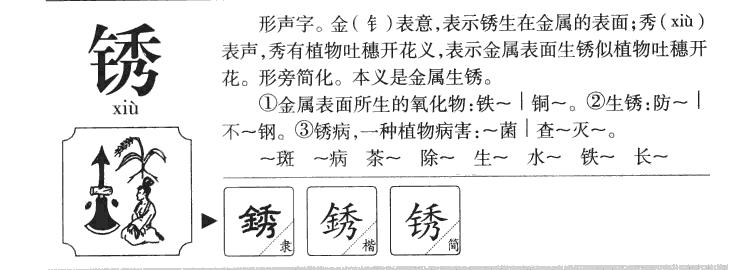 锈
xiù
形声字。金(钅)表意,表示锈生在金属的表面;秀(xiù)
表声,秀有植物吐穗开花义,表示金属表面生锈似植物吐穗开
花。形旁简化。本义是金属生锈。
①金属表面所生的氧化物:铁～｜铜～。②生锈:防～｜
不～钢。③锈病,一种植物病害:～菌｜查～灭～。
～斑 ～病 茶～ 除～ 生～ 水～ 铁～ 长～
銹 隶 銹 楷 锈 简